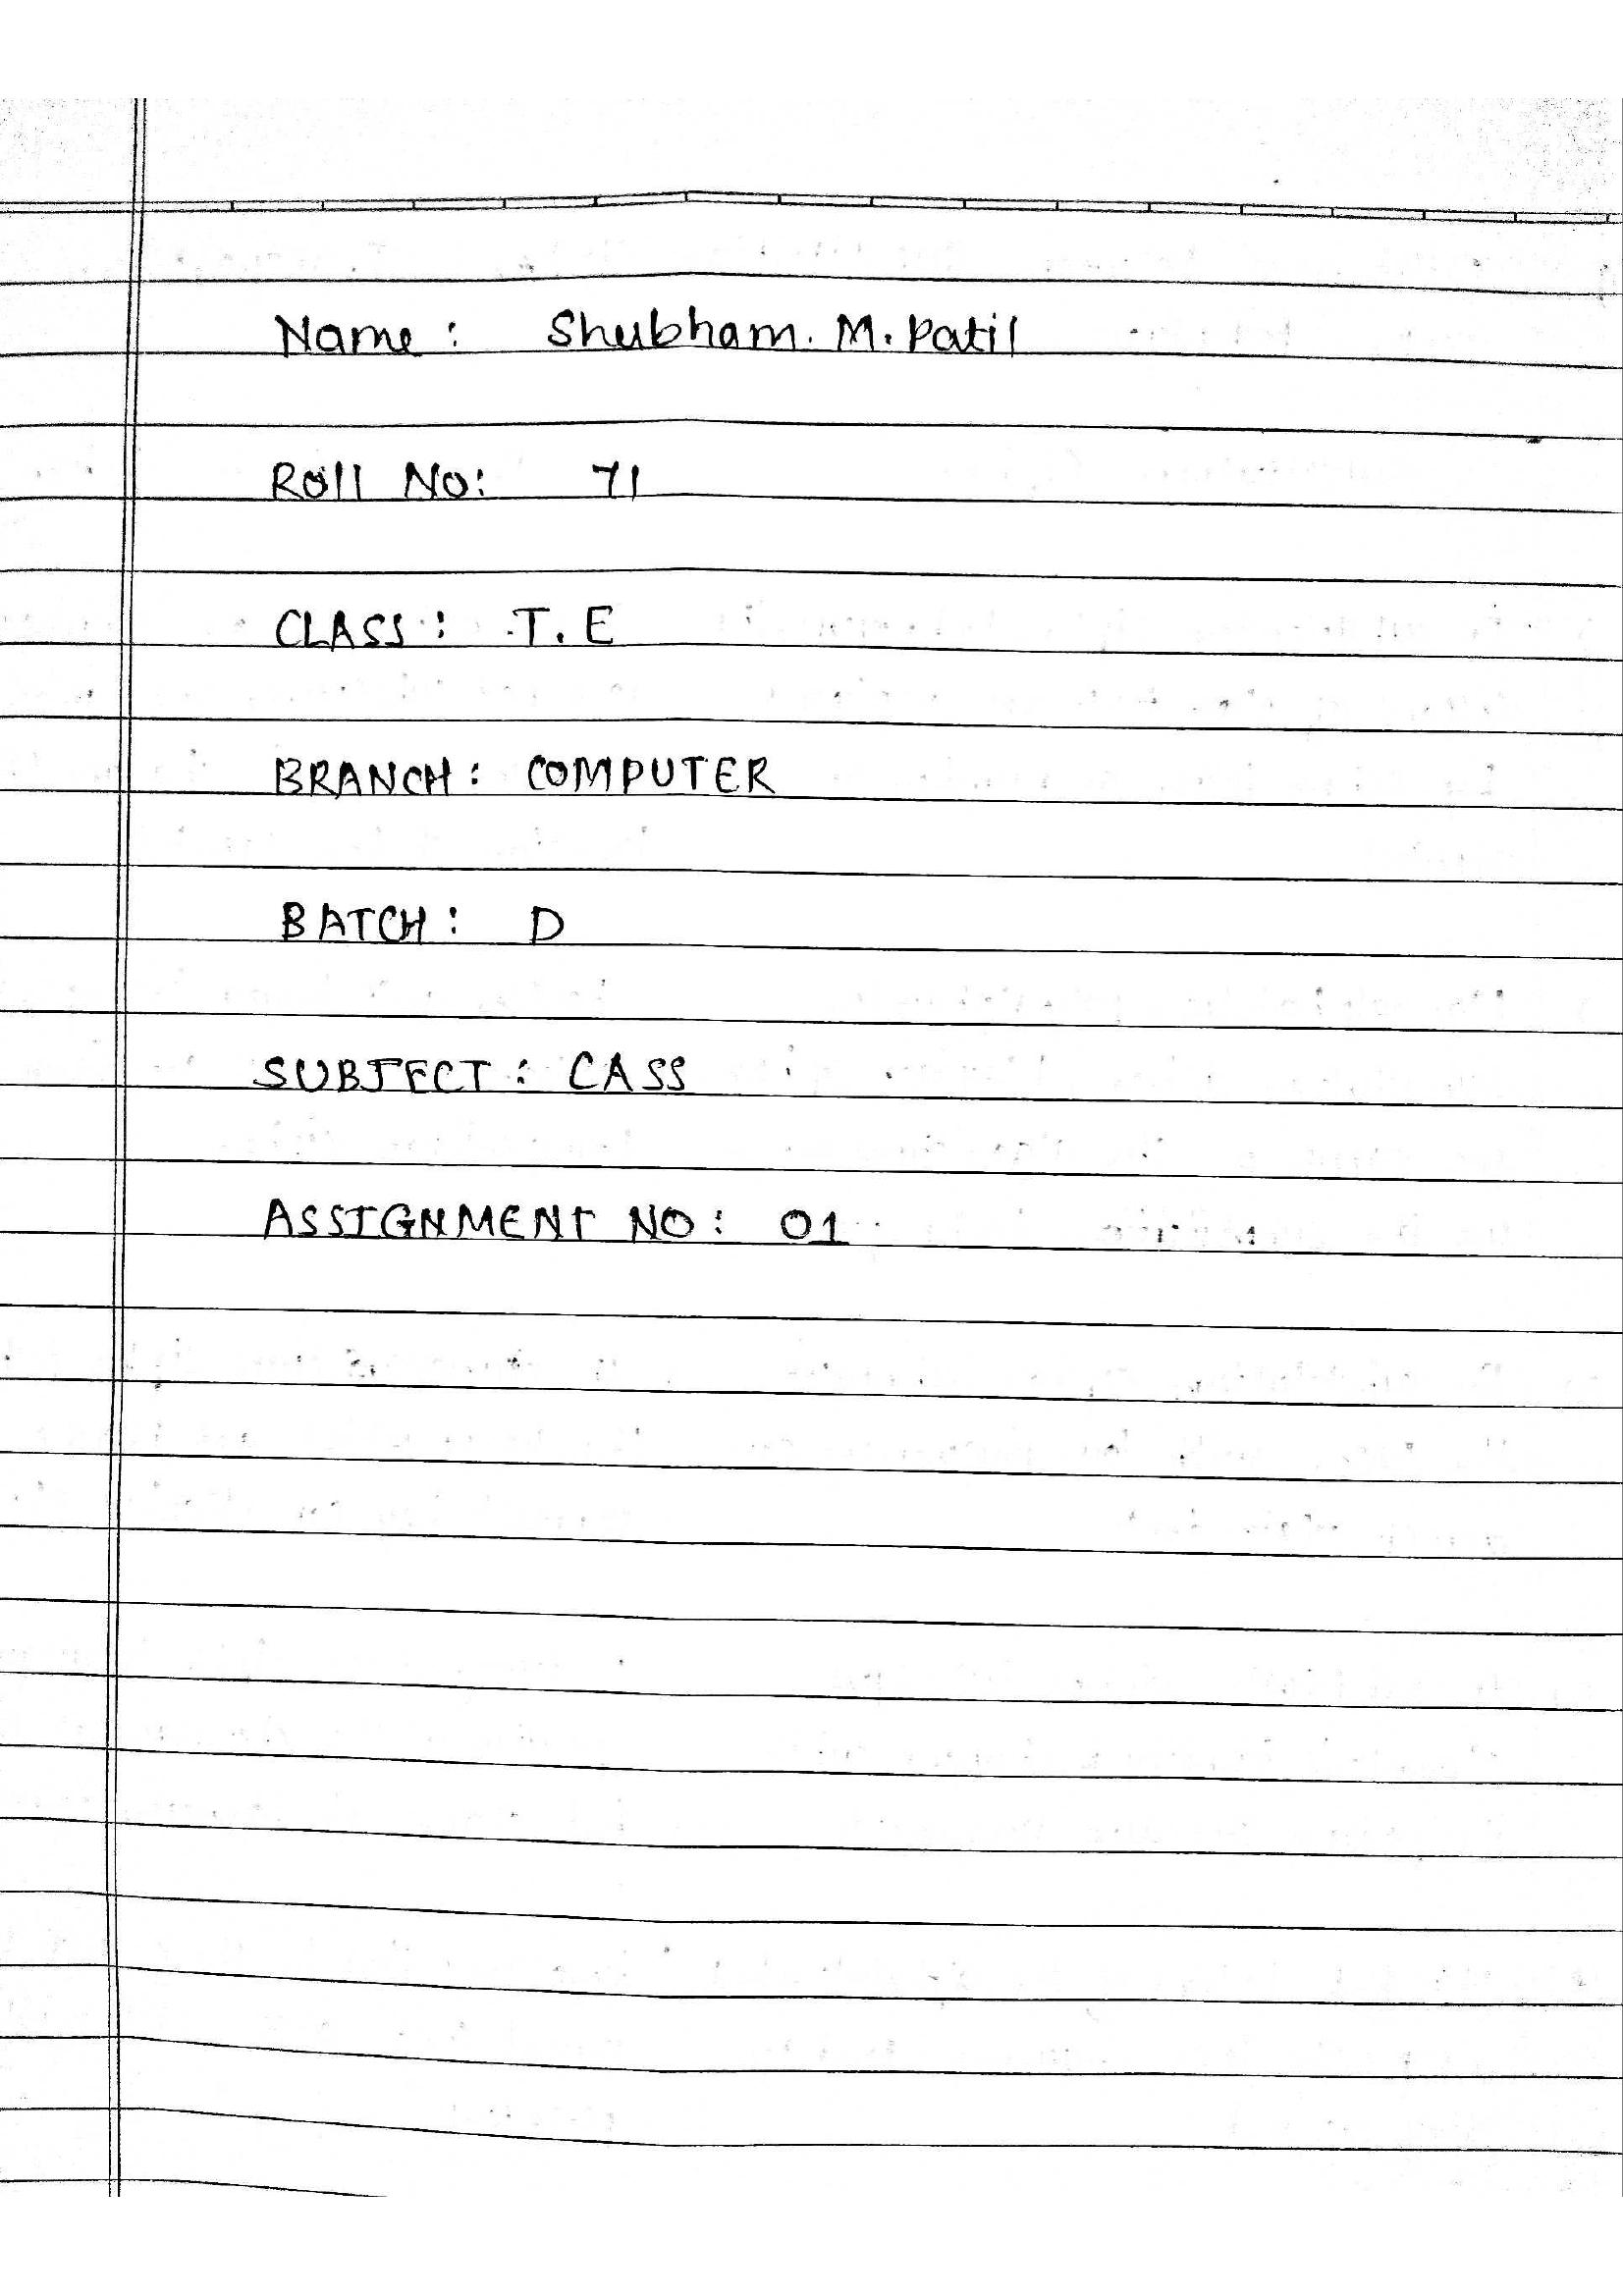 Name : Shubham. M. Patil
Roll No: 71
CLASS : T. E
BRANCH : COMPUTER
BATCH : D
SUBJECT : CASS
ASSIGNMENT NO : 01